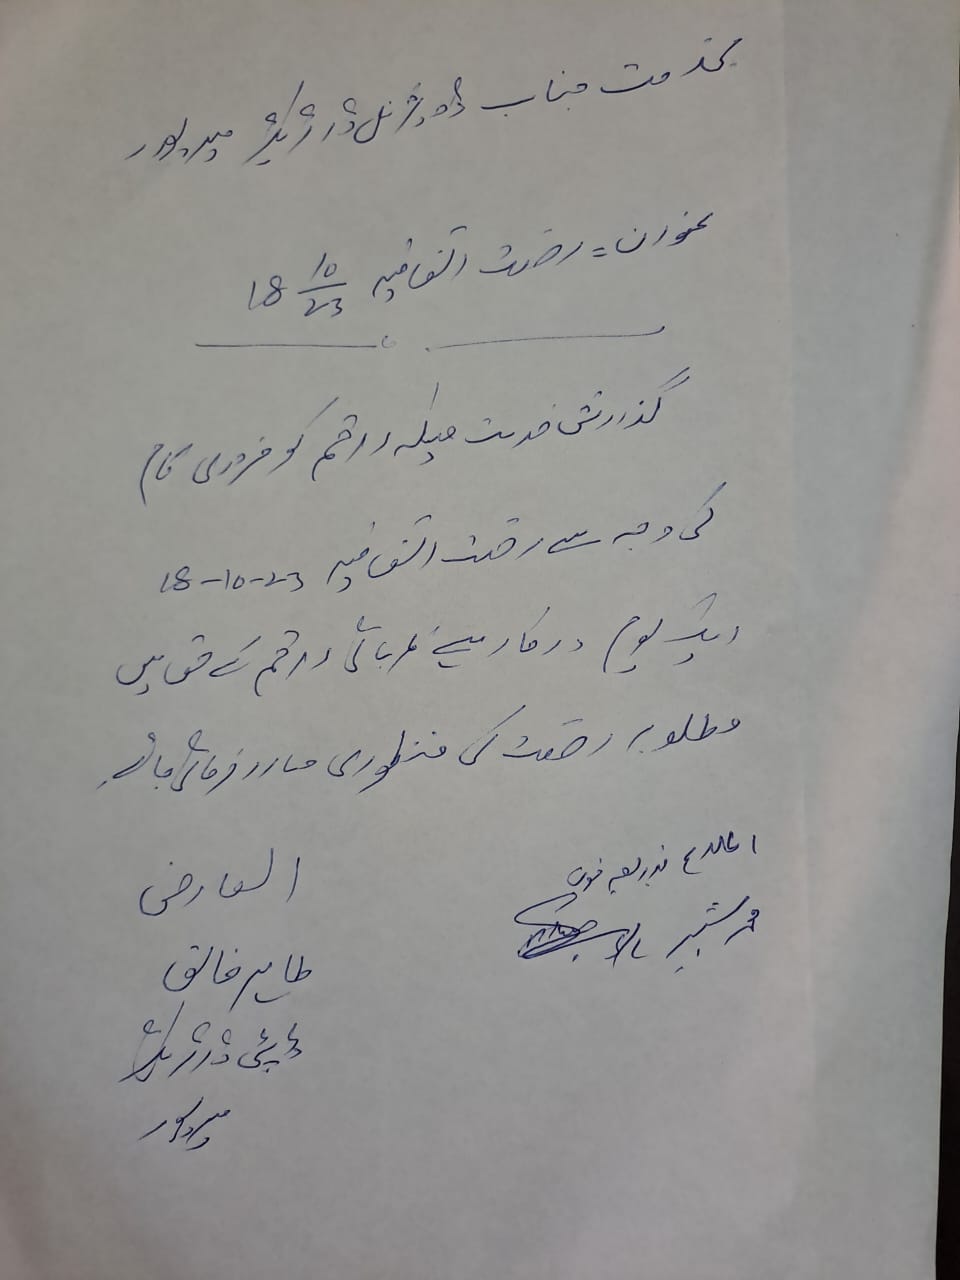 بخدمت جناب ڈویژنل ڈائریکٹر میرپور
عنوان = رخصت اتفاقیہ 18 10/23
گذارش خدمت ہیکہ راقم کو ضروری کام
کی وجہ سے رخصت اتفاقیہ 18-10-23
ایک یوم درکار ہے مہربانی راقم کے حق میں
مطلوبہ رخصت کی منظوری صادر فرمائی جائے
اطلاع بذریعہ فون
محمد شبیر
العارض
طاہر خالق
ڈپٹی ڈائریکٹر
میرپور